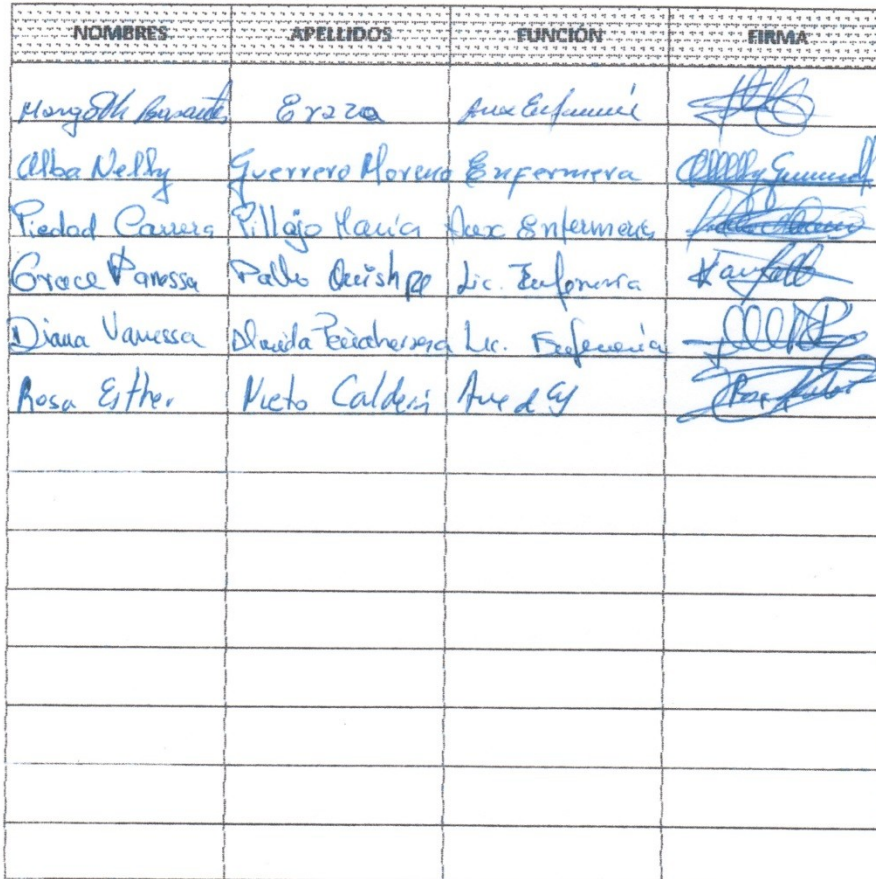 NOMBRES APELLIDOS FUNCION FIRMA
Margoth Basantes Erazo Aux Enfermería
Alba Nelly Guerrero Moreno Enfermera
Piedad Carrera Pillajo María Aux Enfermería
Grace Vanessa Pallo Quishpe Lic. Enfermería
Diana Vanessa Almeida Peñaherrera Lic. Enfermería
Rosa Esther Nieto Calderón Aux d